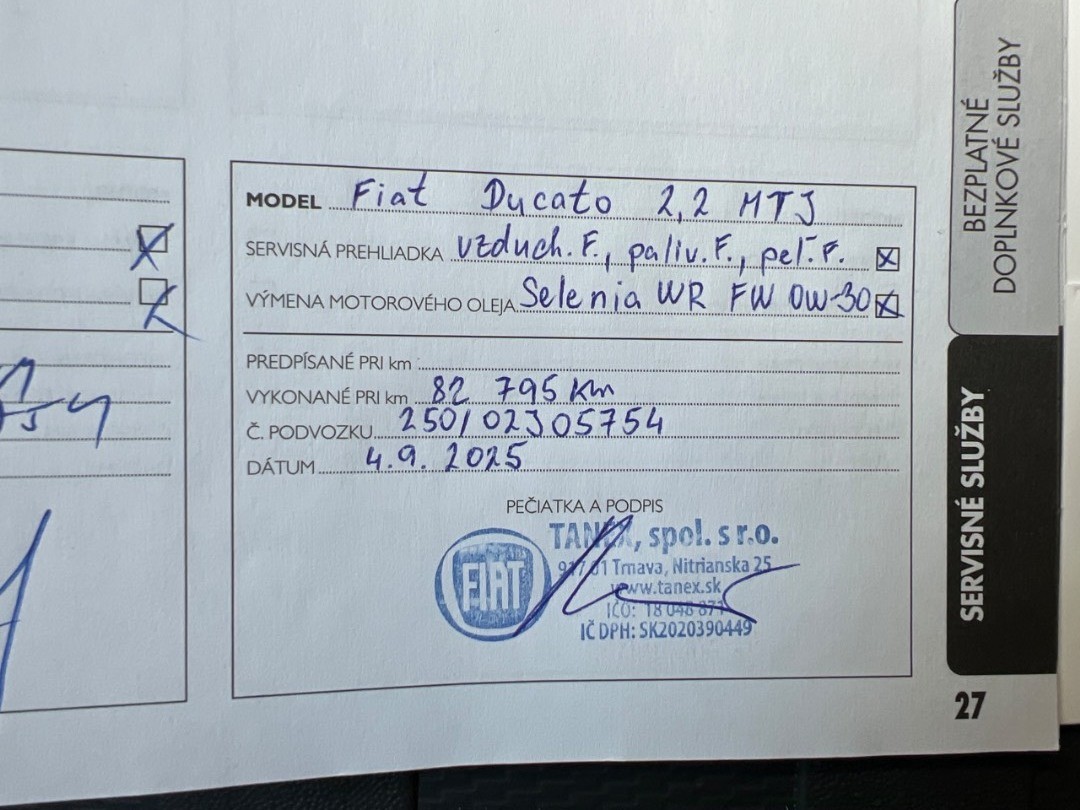 MODEL Fiat Ducato 2,2 MTJ
SERVISNÁ PREHLIADKA vzduch. F., paliv. F., peľ. F.
VÝMENA MOTOROVÉHO OLEJA Selenia WR FW 0W-30
PREDPÍSANÉ PRI km
VYKONANÉ PRI km 82 795 km
Č. PODVOZKU 250/02J05754
DÁTUM 4.9. 2025
PEČIATKA A PODPIS
FIAT
TANEX, spol. s r.o.
917 01 Trnava, Nitrianska 25
www.tanex.sk
IČO: 18 048 871
IČ DPH: SK2020390449
BEZPLATNÉ
DOPLNKOVÉ SLUŽBY
SERVISNÉ SLUŽBY
27